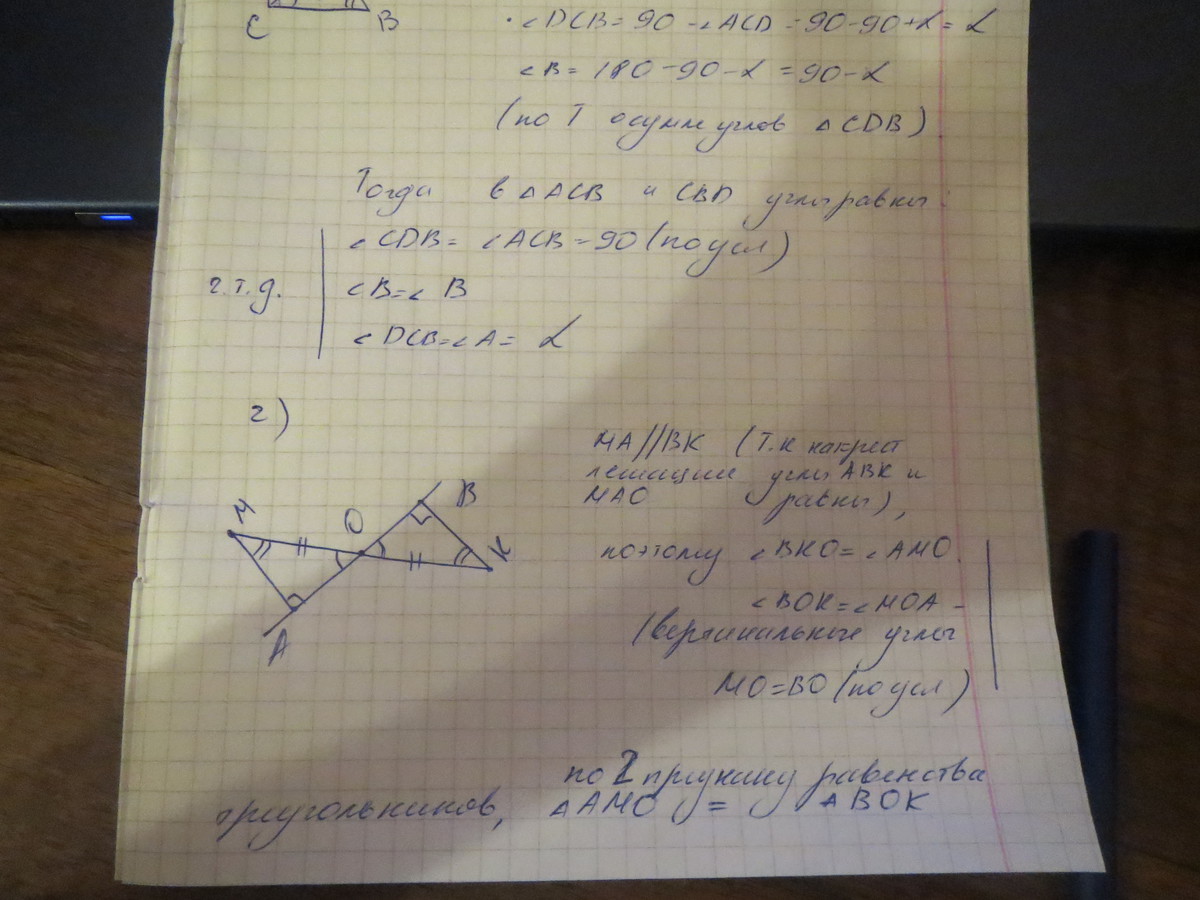 C B
· ∠DCB = 90 - ∠ACD = 90-90+α = α
∠B = 180-90-α = 90-α
(по Т о сумме углов △CDB)
Тогда в △ACB и CBD углы равны:
∠CDB = ∠ACB = 90 (по усл)
ч.т.д.
∠B = ∠B
∠DCB = ∠A = α
2)
MA//BK (т.к накрест
лежащие углы ABK и
MAO равны),
M O B K A
поэтому ∠BKO = ∠AMO.
∠BOK = ∠MOA -
(вертикальные углы
MO = BO (по усл)
по 2 признаку равенства
треугольников, △AMO = △BOK